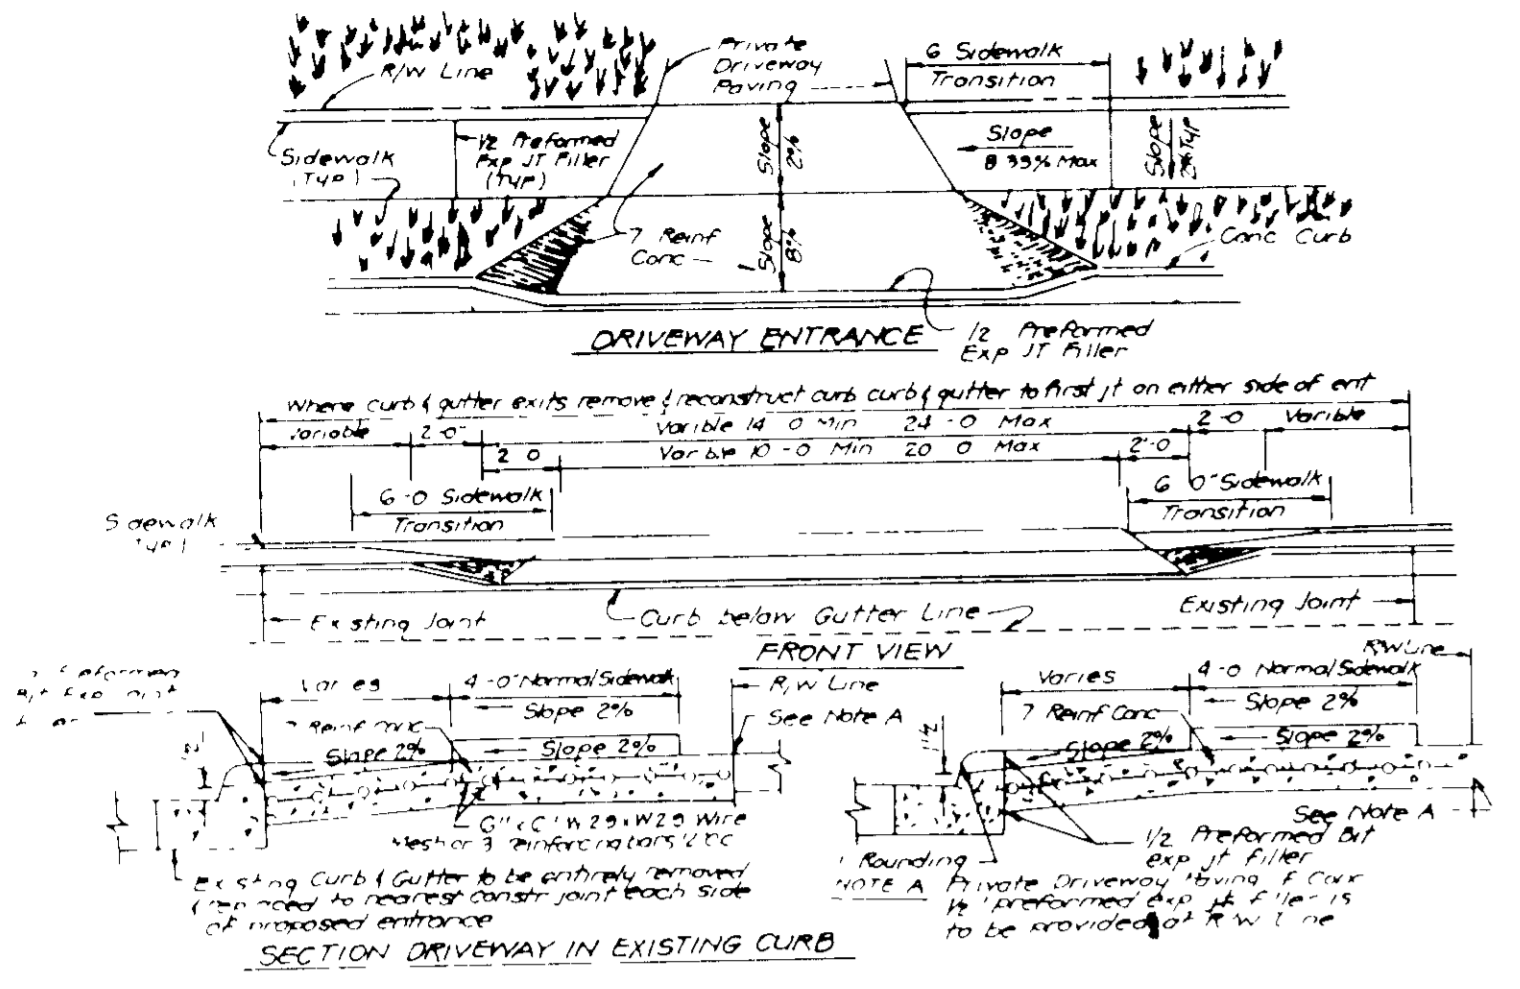 Private
Driveway
Paving
6 Sidewalk
Transition
R/W Line
Sidewalk
(Typ)
1/2 Preformed
Exp JT Filler
(Typ)
Slope
2%
Slope
8 33% Max
Slope
2% Typ
7 Reinf
Conc
Slope
8%
Conc Curb
DRIVEWAY ENTRANCE
1/2 Preformed
Exp JT Filler
Where curb & gutter exits remove & reconstruct curb curb & gutter to first jt on either side of ent
Variable
2-0"
Varible 14 0 Min 24-0 Max
2-0
Varible
2 0
Varible 10-0 Min 20 0 Max
2'-0
6-0 Sidewalk
Transition
6 0" Sidewalk
Transition
Sidewalk
Existing Joint
Curb below Gutter Line
Existing Joint
FRONT VIEW
Varies
4-0" Normal Sidewalk
Slope 2%
R/W Line
See Note A
7 Reinf Conc
Slope 2%
Slope 2%
Wire
Mesh or 3 reinforcing bars
Existing Curb & Gutter to be entirely removed
to nearest constr joint each side
of proposed entrance
SECTION DRIVEWAY IN EXISTING CURB
R/W Line
Varies
4-0 Normal Sidewalk
Slope 2%
7 Reinf Conc
Slope 2%
Slope 2%
See Note A
1/2 Preformed Bit
exp jt filler
Rounding
NOTE A Private Driveway Paving
1/2" preformed exp jt filler is
to be provided at R W Line